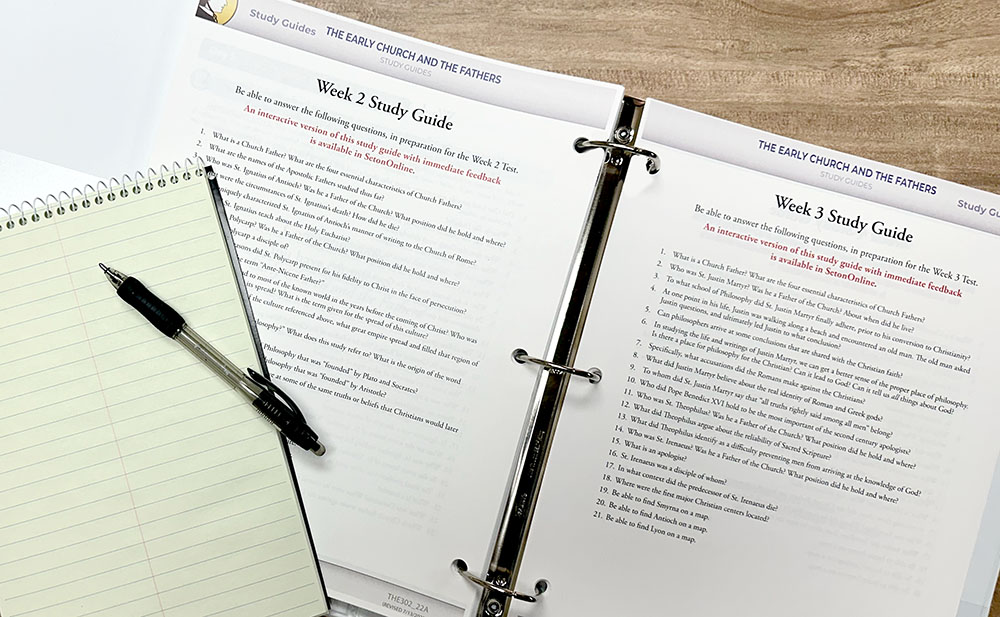 Study Guides
THE EARLY CHURCH AND THE FATHERS
STUDY GUIDES
Week 2 Study Guide
Be able to answer the following questions, in preparation for the Week 2 Test.
An interactive version of this study guide with immediate feedback
is available in SetonOnline.
1. What is a Church Father? What are the four essential characteristics of Church Fathers?
2. What are the names of the Apostolic Fathers studied thus far?
Who was St. Ignatius of Antioch? Was he a Father of the Church? What position did he hold and where?
were the circumstances of St. Ignatius's death? How did he die?
characterized St. Ignatius of Antioch's manner of writing to the Church of Rome?
St. Ignatius teach about the Holy Eucharist?
Polycarp? Was he a Father of the Church? What position did he hold and where?
a disciple of?
did St. Polycarp present for his fidelity to Christ in the face of persecution?
term "Ante-Nicene Father?"
to most of the known world in the years before the coming of Christ? Who was
spread? What is the term given for the spread of this culture?
the culture referenced above, what great empire spread and filled that region of
What does this study refer to? What is the origin of the word
Philosophy that was "founded" by Plato and Socrates?
that was "founded" by Aristotle?
at some of the same truths or beliefs that Christians would later
THE302_22A
THE EARLY CHURCH AND THE FATHERS
STUDY GUIDES
Study G
Week 3 Study Guide
Be able to answer the following questions, in preparation for the Week 3 Test.
An interactive version of this study guide with immediate feedback
is available in SetonOnline.
1. What is a Church Father? What are the four essential characteristics of Church Fathers?
2. Who was St. Justin Martyr? Was he a Father of the Church? About when did he live?
3. To what school of Philosophy did St. Justin Martyr finally adhere, prior to his conversion to Christianity?
4. At one point in his life, Justin was walking along a beach and encountered an old man. The old man asked
Justin questions, and ultimately led Justin to what conclusion?
5. Can philosophers arrive at some conclusions that are shared with the Christian faith?
6. In studying the life and writings of Justin Martyr, we can get a better sense of the proper place of philosophy.
Is there a place for philosophy for the Christian? Can it lead to God? Can it tell us all things about God?
7. Specifically, what accusations did the Romans make against the Christians?
8. What did Justin Martyr believe about the real identity of Roman and Greek gods?
9. To whom did St. Justin Martyr say that "all truths rightly said among all men" belong?
10. Who did Pope Benedict XVI hold to be the most important of the second century apologists?
11. Who was St. Theophilus? Was he a Father of the Church? What position did he hold and where?
12. What did Theophilus argue about the reliability of Sacred Scripture?
13. What did Theophilus identify as a difficulty preventing men from arriving at the knowledge of God?
14. Who was St. Irenaeus? Was he a Father of the Church? What position did he hold and where?
15. What is an apologist?
16. St. Irenaeus was a disciple of whom?
17. In what context did the predecessor of St. Irenaeus die?
18. Where were the first major Christian centers located?
19. Be able to find Smyrna on a map.
20. Be able to find Antioch on a map.
21. Be able to find Lyon on a map.